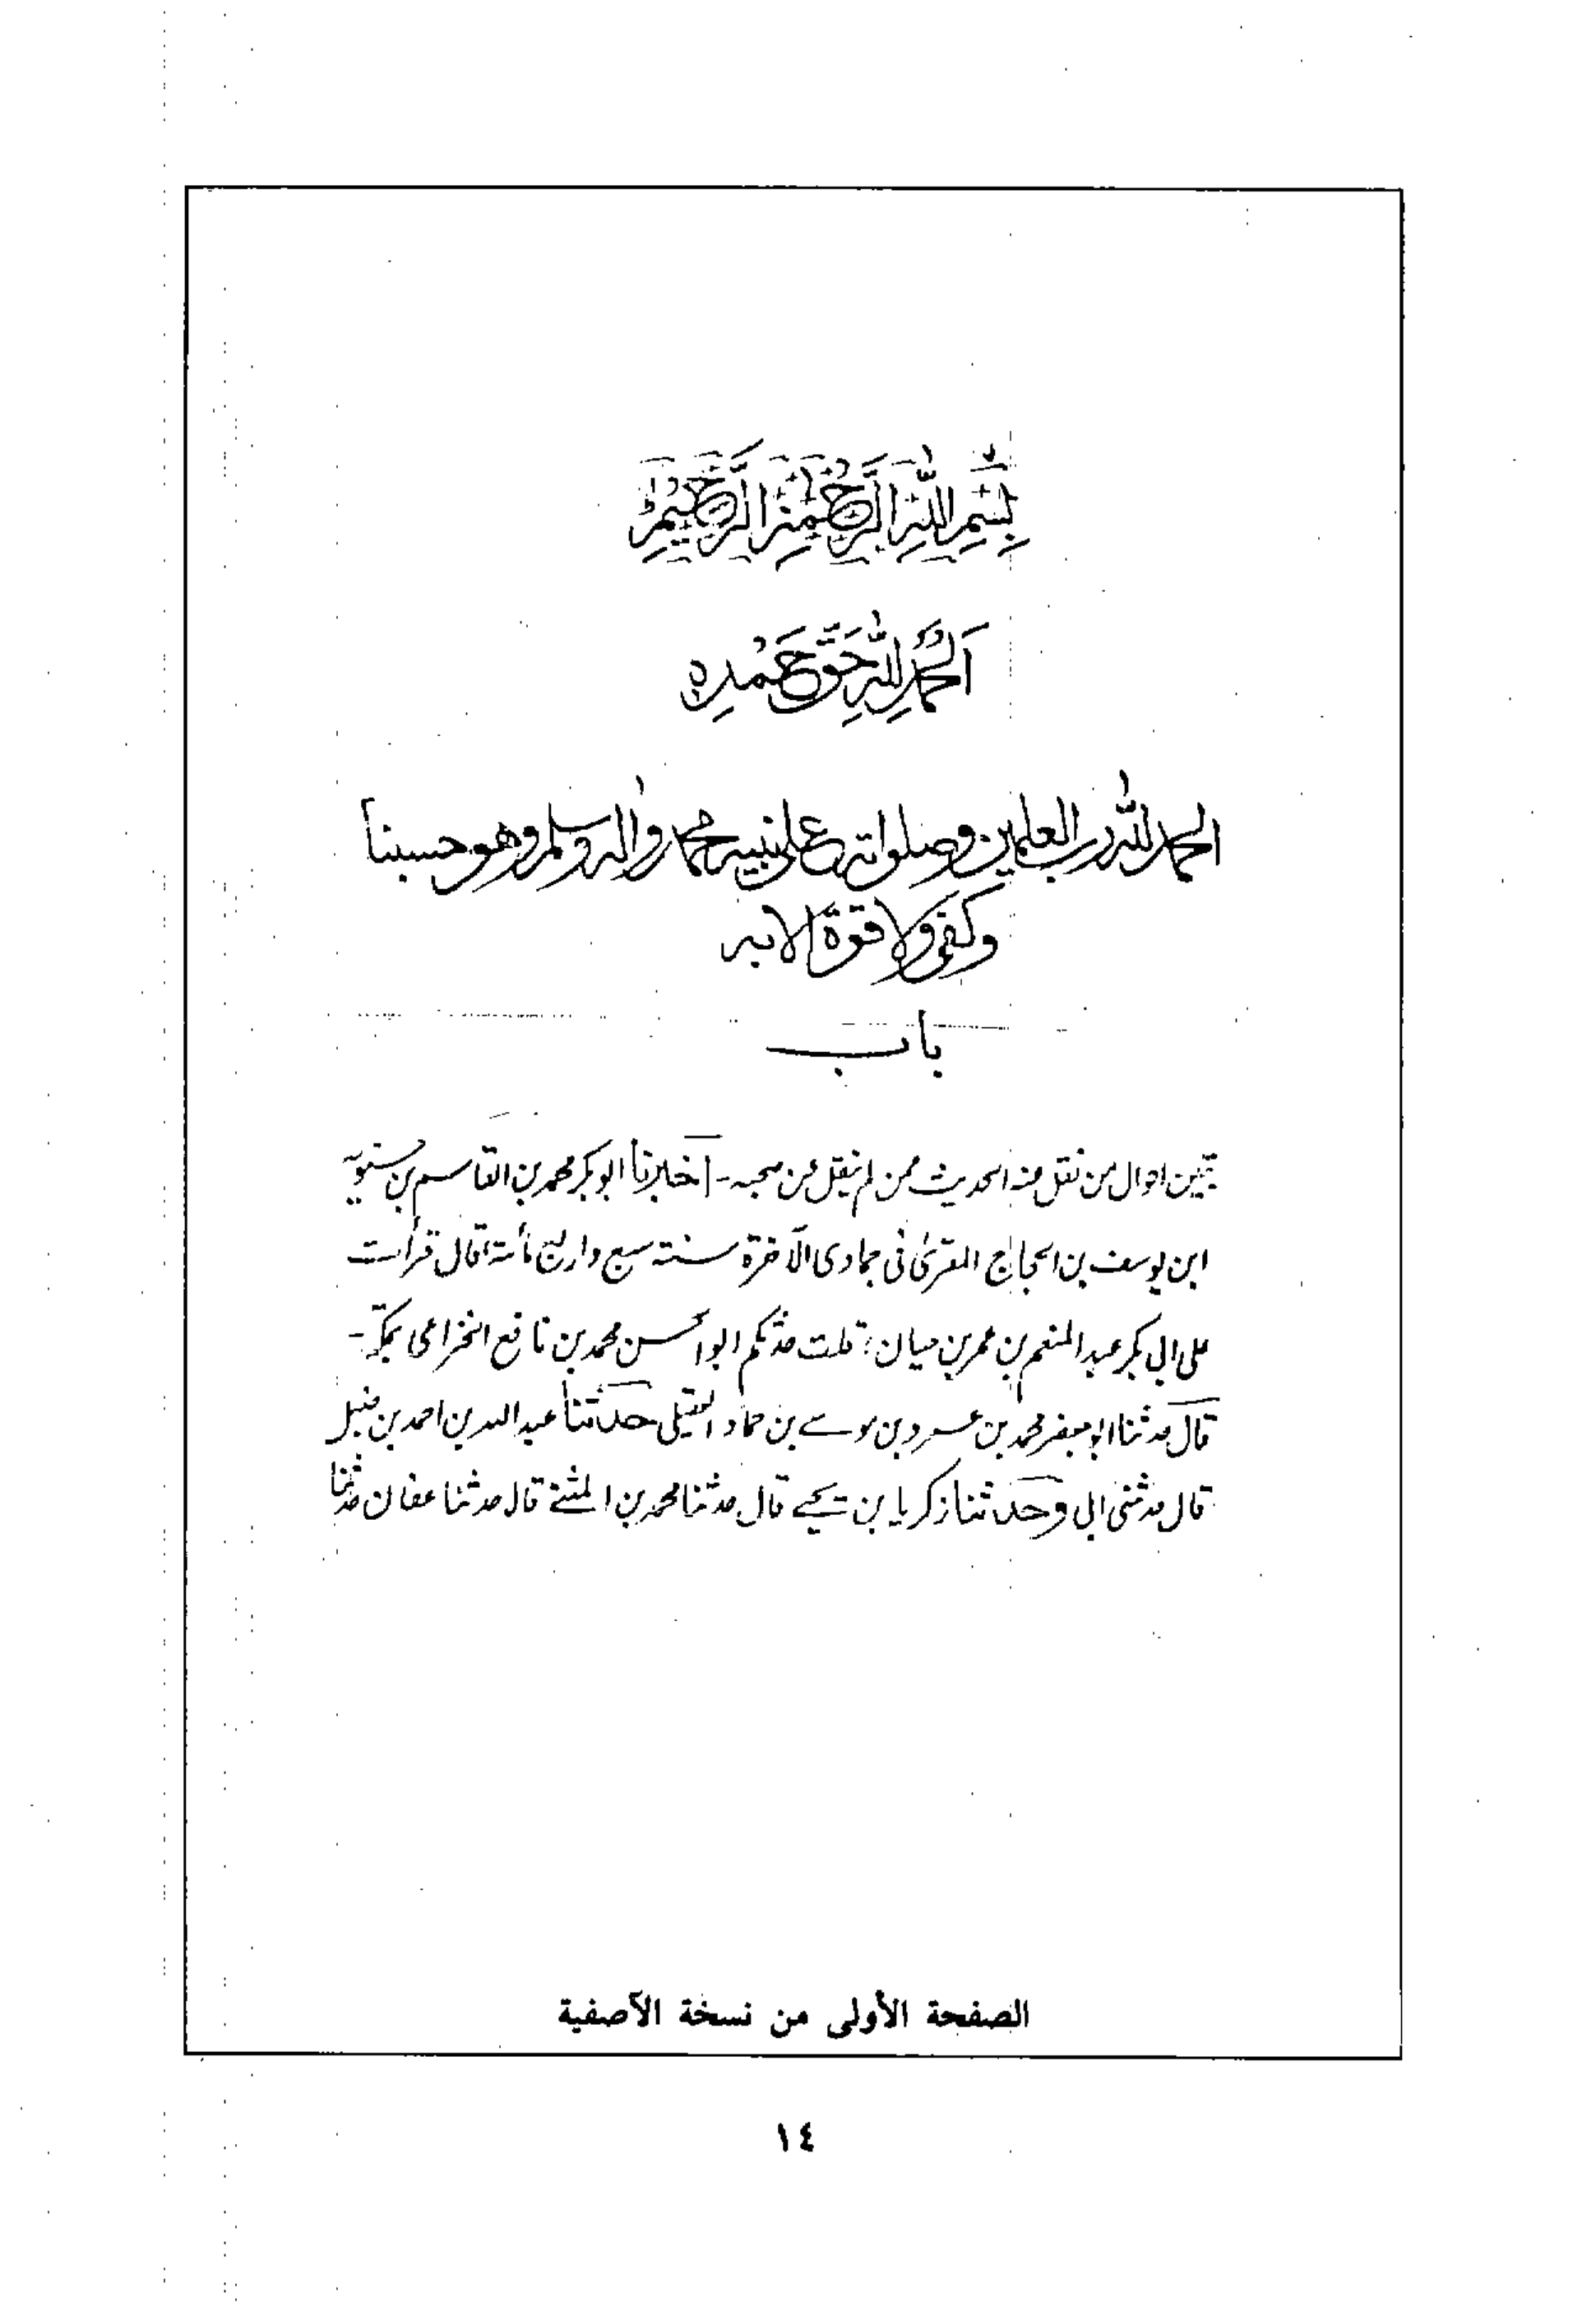 بِسْمِ اللهِ الرَّحْمٰنِ الرَّحِيْمِ
اَلْحَمْدُ لِلّٰهِ حَقَّ حَمْدِهِ
الحمد لله رب العلمين وصلواته على نبيه محمد واله وسلم وهو حسبنا
وكفى ولا قوة الا به
باب
تبين احوال من نقل عنه الحديث ممن لم ينقل عن صحبه - اخبرنا ابو بكر محمد بن القاسم بن
ابن يوسف بن الحجاج المقرئ فى جمادى الآخرة سنة سبع واربع مأة قال قرأت
على ابى بكر عبد المنعم بن عمر بن حيان: قلت حدثكم ابو الحسن محمد بن نافع الخزاعى بمكة -
قال حدثنا ابو جعفر محمد بن عمرو بن موسے بن حماد العقيلى حدثنا عبد الله بن احمد بن حنبل
قال حدثنى ابى وحدثنا زكريا بن يحيے قال حدثنا محمد بن المثنے قال حدثنا عفان حدثنا
الصفحة الأولى من نسخة الآصفية
١٤